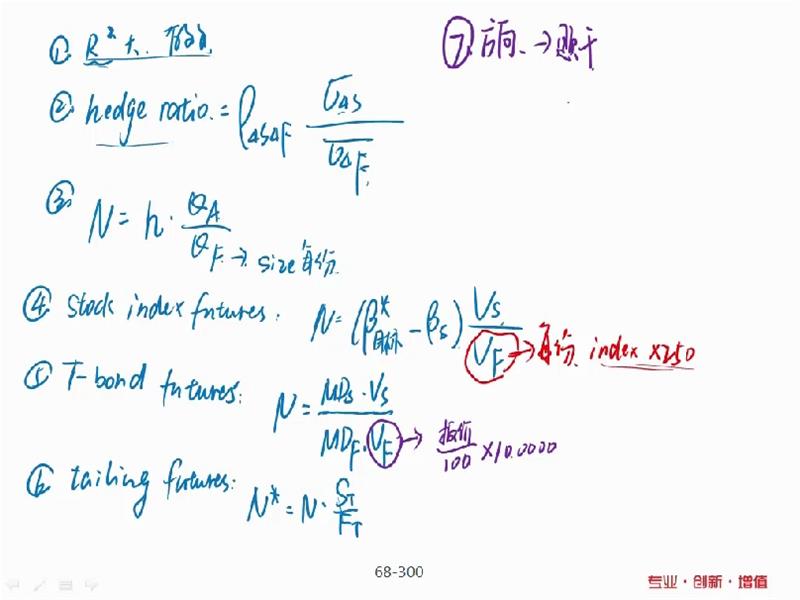 ① R² 大.
② hedge ratio. = ρΔSΔF σΔS / σΔF
③ N = h · QA / QF → size 每份.
④ Stock index futures: N = (β*目标 - βs) Vs / VF → 每份 index ×250
⑤ T-bond futures: N = MDs · Vs / MDF · VF → 报价/100 ×10.0000
⑥ tailing futures: N* = N · ST / FT
⑦ 方向 →
68-300
专业·创新·增值